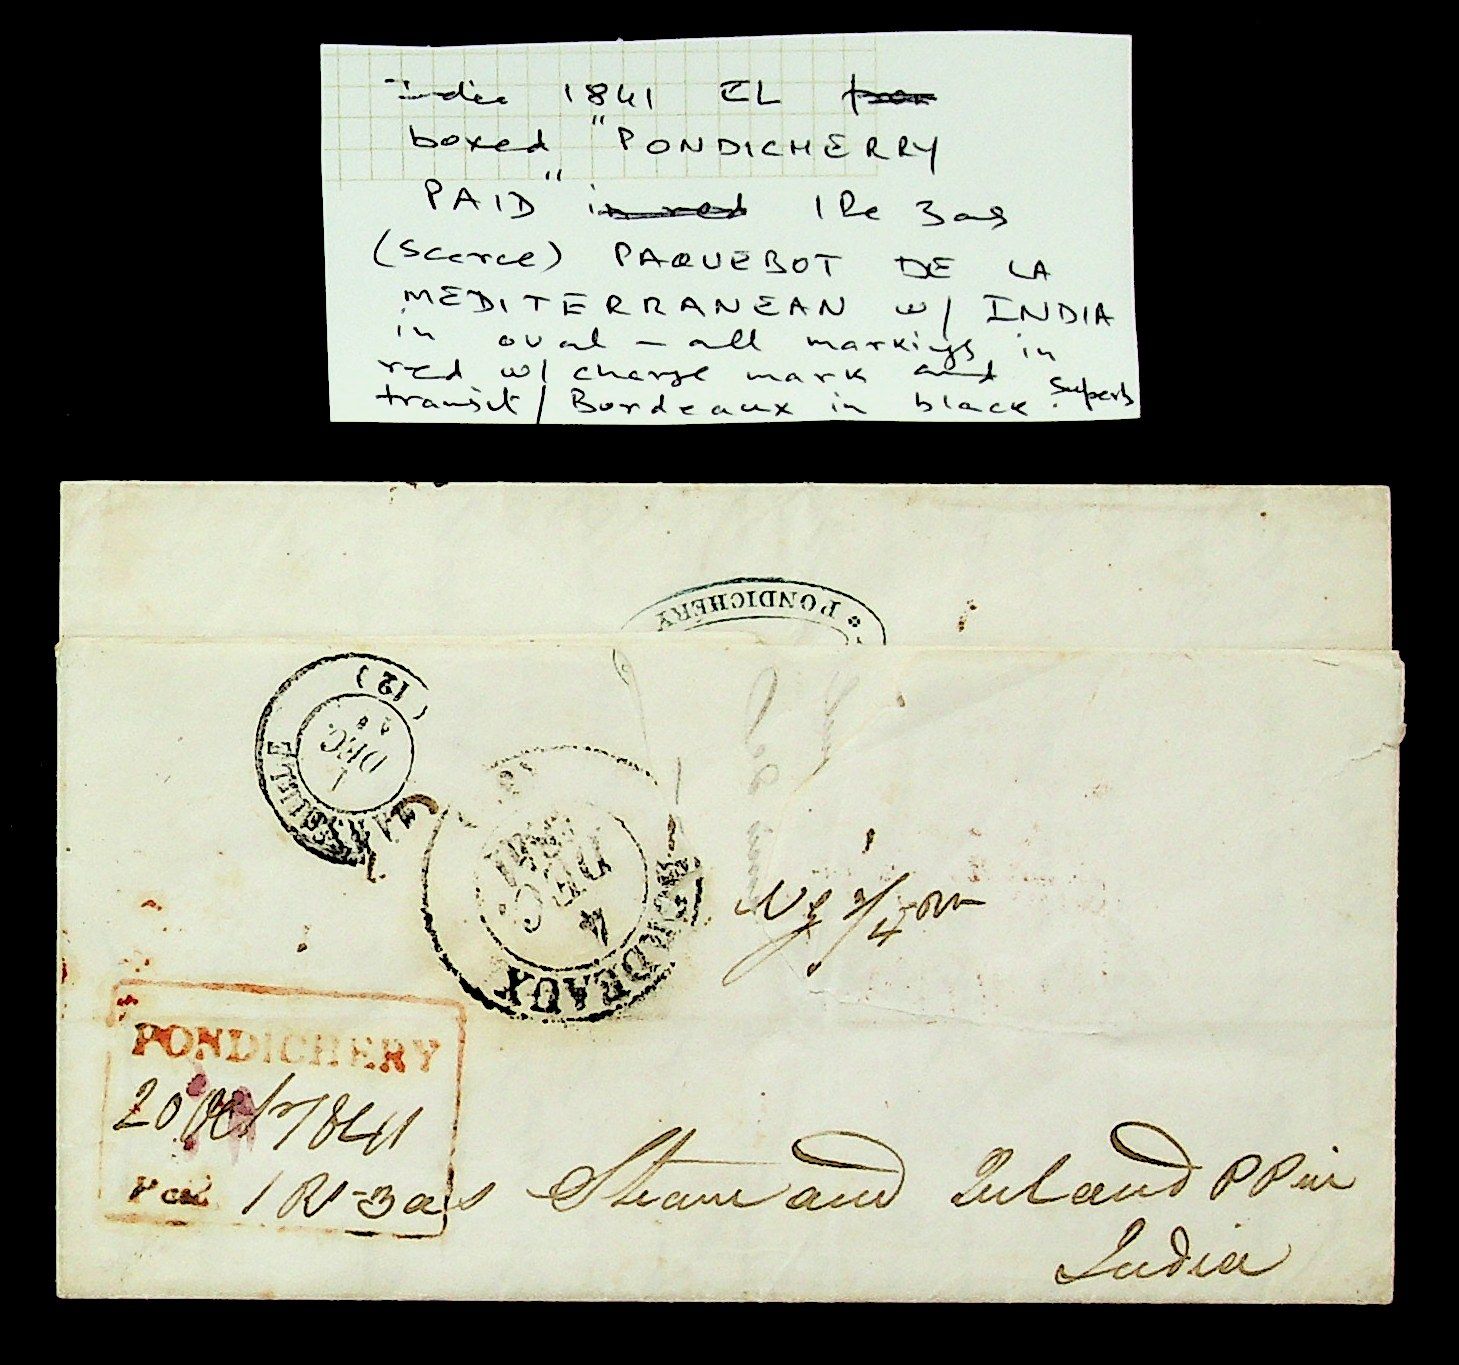 India 1841 EL
boxed "PONDICHERRY
PAID" in red 1 Re 3 as
(scarce) PAQUEBOT DE LA
MEDITERRANEAN w/ INDIA
in oval – all markings in
red w/ charge mark and
transit / Bordeaux in black. superb
PONDICHERY
(12)
1
DEC.
MARSEILLE
4
DEC.
BORDEAUX
PONDICHERY
20 Oct 1841
Paid 1 R 3 as
Steam and Inland P Pin
India